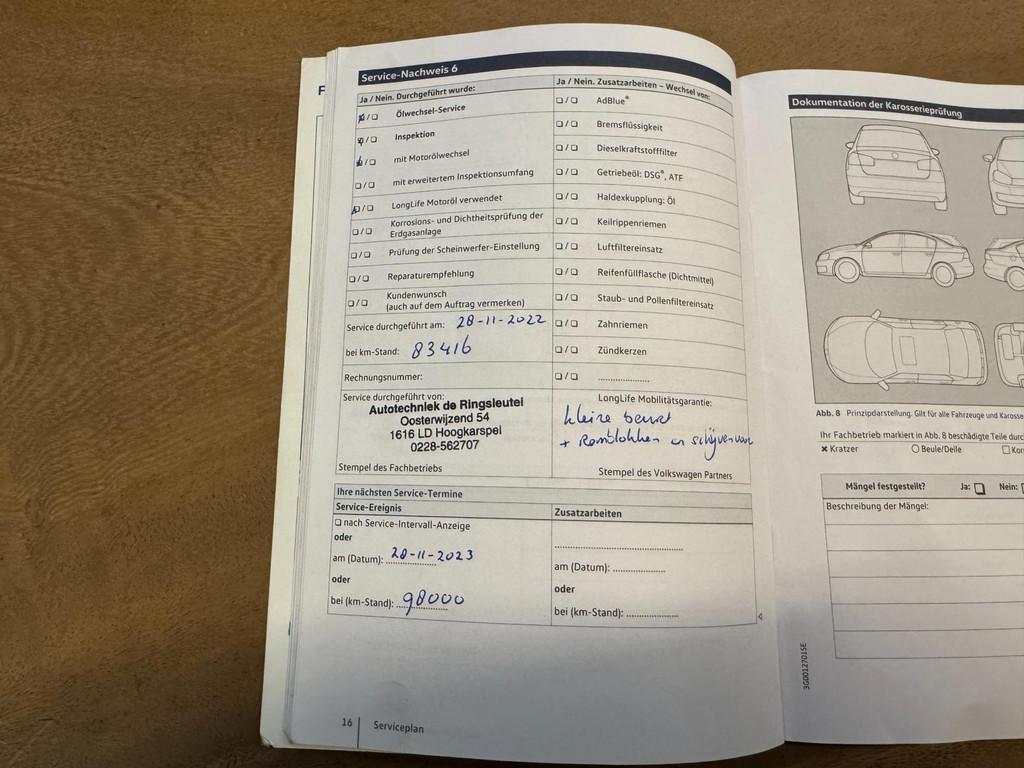 F
Service-Nachweis 6
Ja / Nein. Durchgeführt wurde:
❑/❑ Ölwechsel-Service
❑/❑ Inspektion
❑/❑ mit Motorölwechsel
❑/❑ mit erweitertem Inspektionsumfang
❑/❑ LongLife Motoröl verwendet
❑/❑ Korrosions- und Dichtheitsprüfung der
Erdgasanlage
❑/❑ Prüfung der Scheinwerfer-Einstellung
❑/❑ Reparaturempfehlung
❑/❑ Kundenwunsch
(auch auf dem Auftrag vermerken)
Service durchgeführt am: 28-11-2022
bei km-Stand: 83416
Rechnungsnummer:
Service durchgeführt von:
Autotechniek de Ringsleutel
Oosterwijzend 54
1616 LD Hoogkarspel
0228-562707
Stempel des Fachbetriebs
Ja / Nein. Zusatzarbeiten – Wechsel von:
❑/❑ AdBlue®
❑/❑ Bremsflüssigkeit
❑/❑ Dieselkraftstofffilter
❑/❑ Getriebeöl: DSG®, ATF
❑/❑ Haldexkupplung: Öl
❑/❑ Keilrippenriemen
❑/❑ Luftfiltereinsatz
❑/❑ Reifenfüllflasche (Dichtmittel)
❑/❑ Staub- und Pollenfiltereinsatz
❑/❑ Zahnriemen
❑/❑ Zündkerzen
❑/❑ ......................
LongLife Mobilitätsgarantie:
kleine beurt
+ Remblokken en schijven voor
Stempel des Volkswagen Partners
Ihre nächsten Service-Termine
Service-Ereignis
❑ nach Service-Intervall-Anzeige
oder
am (Datum): 28-11-2023
oder
bei (km-Stand): 98000
Zusatzarbeiten
......................
am (Datum): ......................
oder
bei (km-Stand): ......................
16 Serviceplan
Dokumentation der Karosserieprüfung
Abb. 8 Prinzipdarstellung. Gilt für alle Fahrzeuge und
Ihr Fachbetrieb markiert in Abb. 8 beschädigte Teile
✖ Kratzer ○ Beule/Delle ❑
Mängel festgestellt? Ja: ❑ Nein:
Beschreibung der Mängel:
3G0012701SE